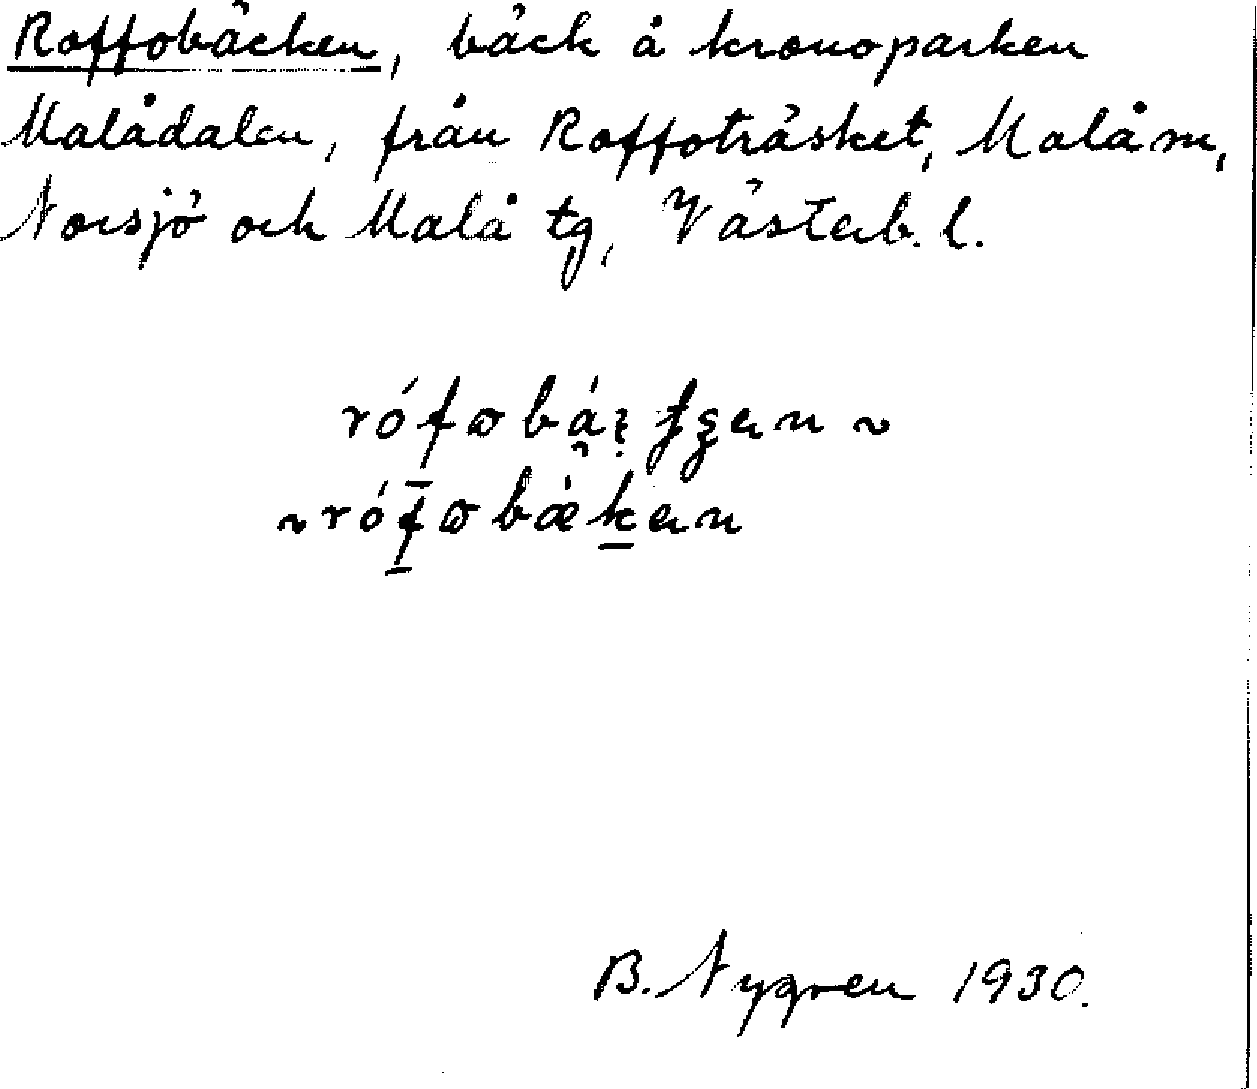 Roffobäcken, bäck å kronoparken
Malådalen, från Roffoträsket, Malå sn,
Norsjö och Malå tg, Västerb. l.
B. Nygren 1930.